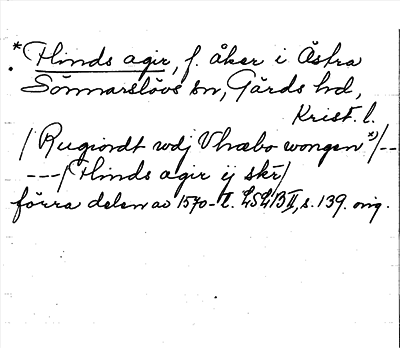 * Hinds agir, f. åker i Östra
Sönnarslövs sn, Gärds hd,
Krist. l.
/ Rugiordt wdj Vhræbo wongen *)/--
---/ Hinds agir ij skr/
förra delen av 1570-t. LSLB II, s. 139. orig.